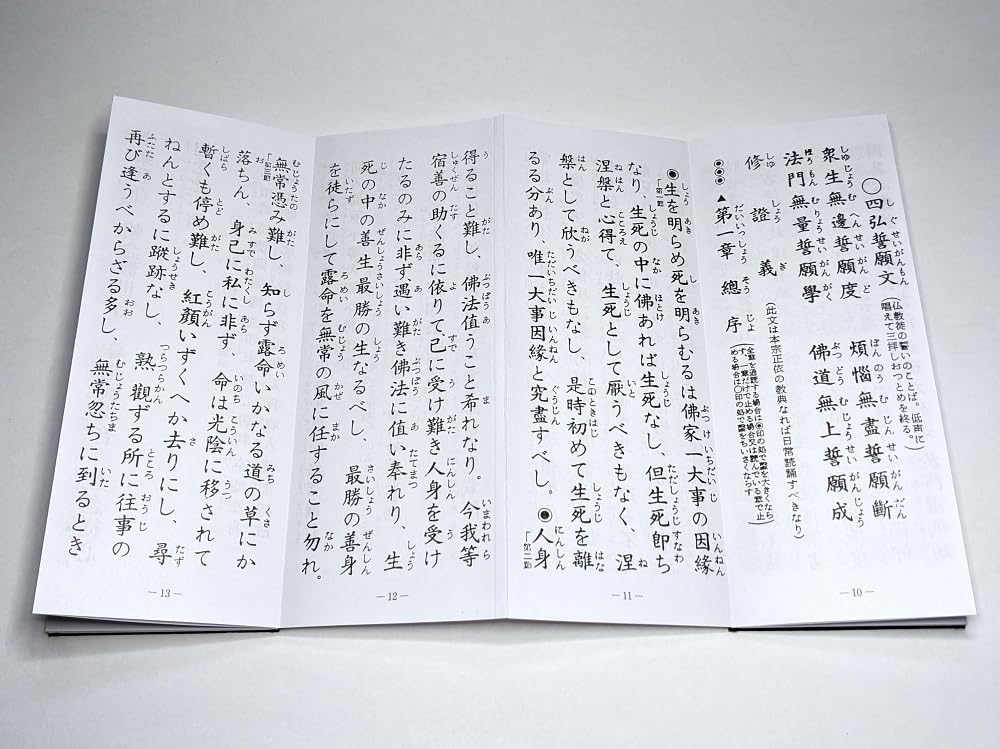 ○四弘誓願文(仏教徒の誓いのことば。低声に唱えて三拝しおつとめを終る。)
衆生無邊誓願度 煩惱無盡誓願斷
法門無量誓願學 佛道無上誓願成
修證義(此文は本宗正依の教典なれば日常読誦すべきなり)
▲第一章 總序
●生を明らめ死を明らむるは佛家一大事の因緣
なり、生死の中に佛あれば生死なし、但生死即ち
涅槃と心得て、生死として厭うべきもなく、涅
槃として欣うべきもなし、是時初めて生死を離
るる分あり、唯一大事因緣と究盡すべし。●人身
得ること難し、佛法値うこと希れなり。今我等
宿善の助くるに依りて、已に受け難き人身を受け
たるのみに非ず遇い難き佛法に値い奉れり、生
死の中の善生最勝の生なるべし、最勝の善身
を徒らにして露命を無常の風に任すること勿れ。
無常憑み難し、知らず露命いかなる道の草にか
落ちん、身已に私に非ず、命は光陰に移されて
暫くも停め難し、紅顔いずくへか去りにし、尋
ねんとするに蹤跡なし、熟觀ずる所に往事の
再び逢うべからざる多し、無常忽ちに到るとき
—10—
—11—
—12—
—13—